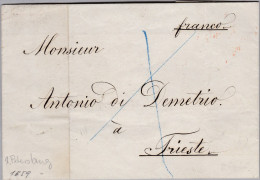 franco.
Monsieur
Antonio di Demetrio.
à
Trieste.
1859